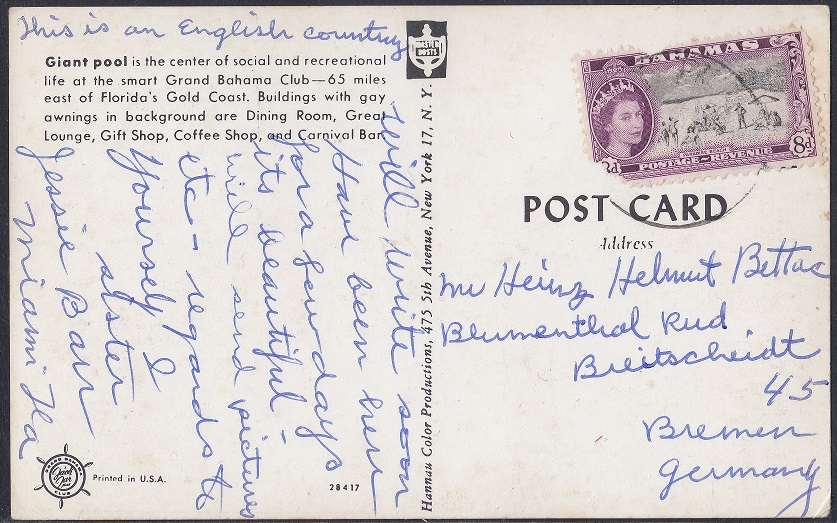 This is an English country
Giant pool is the center of social and recreational
life at the smart Grand Bahama Club—65 miles
east of Florida's Gold Coast. Buildings with gay
awnings in background are Dining Room, Great
Lounge, Gift Shop, Coffee Shop, and Carnival Bar.
will write soon
Have been here
for a few days
its beautiful -
will send pictures
etc - regards to
Yourself &
sister
Jessie Barr
Miami Fla
GRAND BAHAMA
Jack Tar
CLUB
Printed in U.S.A.
28417
Hannau Color Productions, 475 5th Avenue, New York 17, N. Y.
BAHAMAS
8d
8d
POSTAGE-REVENUE
POST CARD
Address
Mr Heinz Helmut Bettac
Blumenthal Rud
Breitscheidt
45
Bremen
Germany